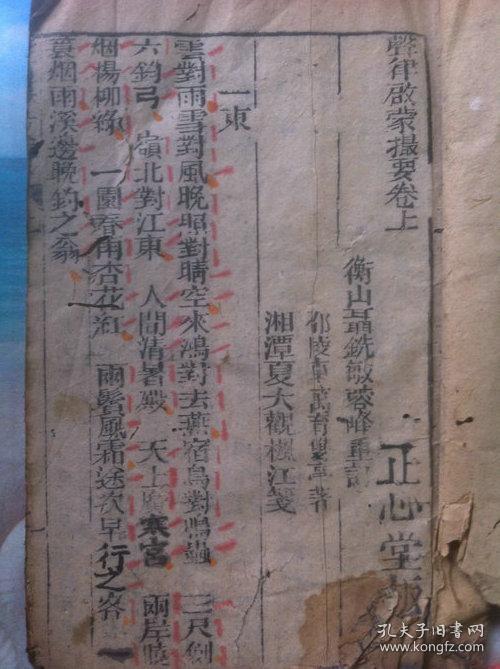 聲律啟蒙撮要卷上
衡山聶銑敏蓉峰重訂
邵陵車萬育雙亭著
湘潭夏大觀楓江箋
正心堂
一東
雲對雨雪對風晚照對晴空來鴻對去燕宿鳥對鳴蟲 三尺劍
六鈞弓 嶺北對江東 人間清暑殿 天上廣寒宮 兩岸曉
烟楊柳綠 一園春雨杏花紅 兩鬢風霜途次早行之客 一
蓑烟雨溪邊晚釣之翁
孔夫子旧书网
kongfz.com